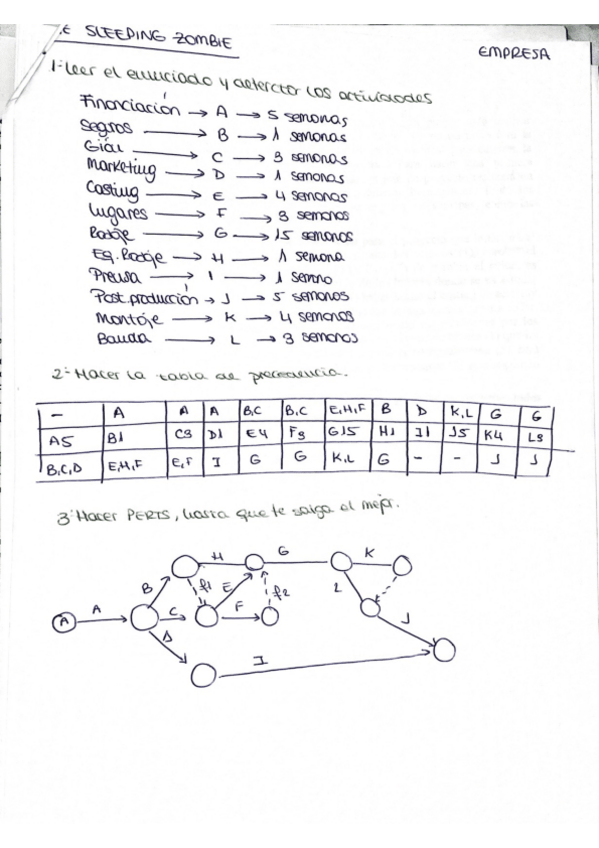 E SLEEPING ZOMBIE
EMPRESA
1-Leer el enunciado y detectar las actividades
Financiación → A → 5 semanas
Segros → B → 1 semanas
Gián → C → 3 semanas
Marketing → D → 1 semanas
Casting → E → 4 semanas
Lugares → F → 3 semanas
Rodaje → G → 15 semanas
Eq. Rodaje → H → 1 semana
Prensa → I → 1 semana
Post. producción → J → 5 semanas
Montaje → K → 4 semanas
Banda → L → 3 semanas
2- Hacer la tabla de precedencia.
– A A A B,C B,C E,H,F B D K,L G G
A5 B1 C3 D1 E4 F3 G15 H1 I1 J5 K4 L3
B,C,D E,H,F E,F I G G K,L G – – J J
3- Hacer PERTS, hasta que te salga el mejor.
H G K
B f1 E f2 L
A A C F J
D
I